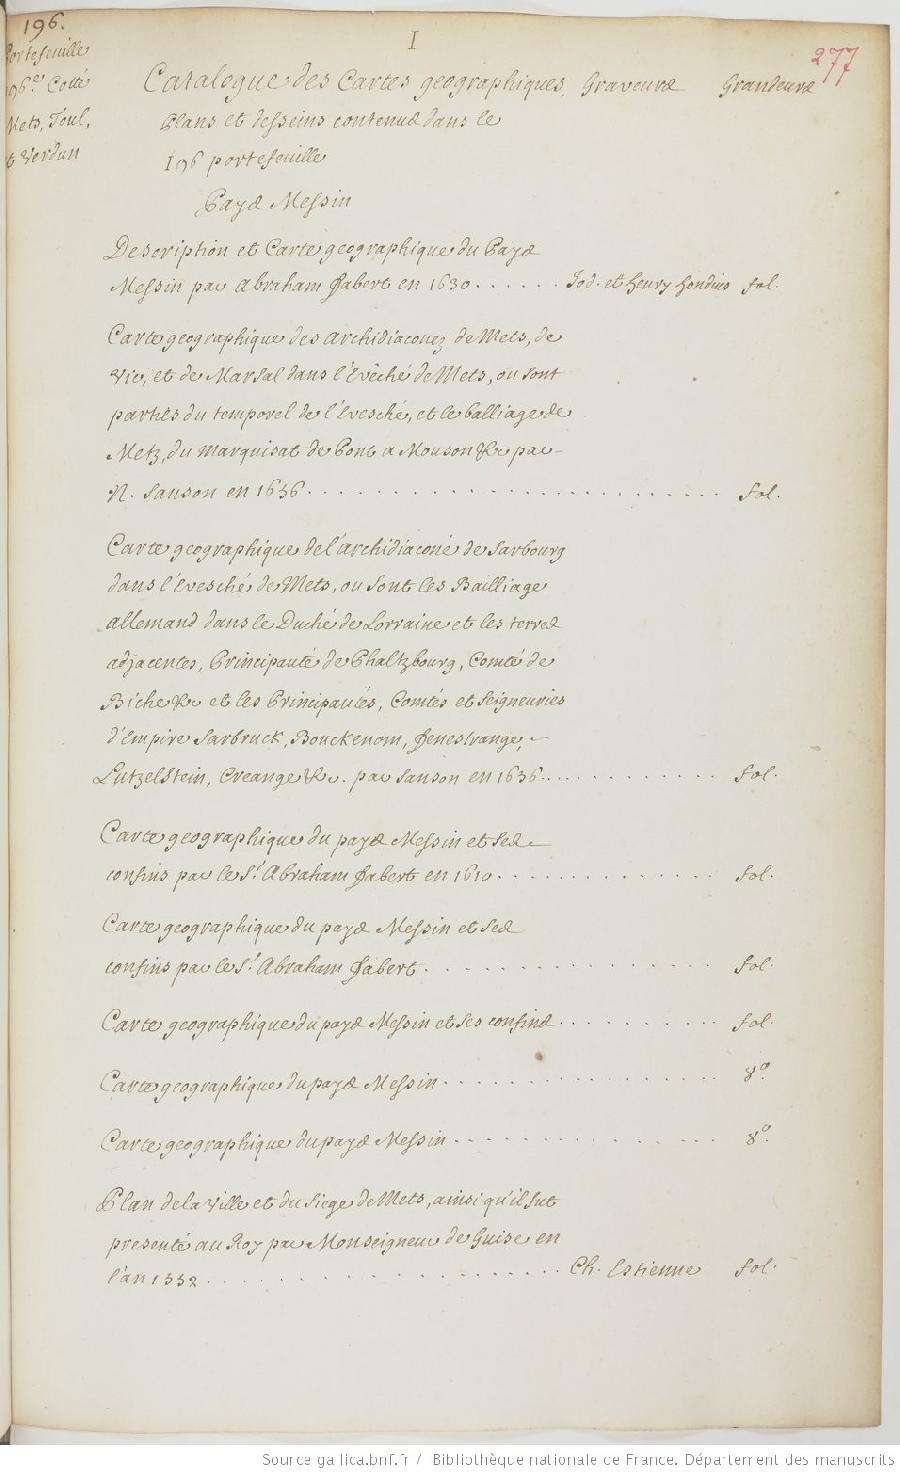 196.
Portefeuille
196e. Cotté
Mets, Toul,
et Verdun
I
277
Catalogue des Cartes geographiques, Graveurs Grandeurs
Plans et desseins contenus dans le
196 portefeuille
Pays Messin
Description et Carte geographique du Pays
Messin par Abraham Fabert en 1630 . . . . . . Jod. et Henry Hondius fol.
Carte geographique des archidiaconez de Mets, de
Vic, et de Marsal dans l'Evêché de Mets, ou sont
parties du temporel de l'Evesché, et le balliage de
Metz, du marquisat de Pont a Mouson &c par
N. Sanson en 1656 . . . . . . . . . . fol.
Carte geographique de l'archidiaconé de Sarbourg
dans l'Evesché de Mets, ou sont les Bailliage
allemand dans le Duché de Lorraine et les terres
adjacentes, Principauté de Phaltzbourg, Comté de
Biche &c et les Principautés, Comtés et Seigneuries
d'Empire Sarbruck, Bouckenom, Fenestrange,
Lutzelstein, Creange &c. par Sanson en 1656 . . . . . . . . fol.
Carte geographique du pays Messin et ses
confins par le Sr. Abraham Fabert en 1610 . . . . . . . . fol.
Carte geographique du pays Messin et ses
confins par le Sr. Abraham Fabert . . . . . . . . fol.
Carte geographique du pays Messin et ses confins . . . . . . . . fol.
Carte geographique du pays Messin . . . . . . . . 8o.
Carte geographique du pays Messin . . . . . . . . 8o.
Plan de la Ville et du Siege de Mets, ainsi qu'il fut
presenté au Roy par Monseigneur de Guise en
l'an 1552 . . . . . . . . Ch. Estienne fol.
Source gallica.bnf.fr / Bibliothèque nationale de France. Département des manuscrits